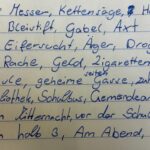 Messer, Kettensäge, H
Bleistift, Gabel, Axt
Eifersucht, Äger, Dro
Rache, Geld, Zigaretten
ule, geheime Gasse,
Schulbus, Gemeindea
Mitternacht, vor der Schul
halb 3, Am Abend,